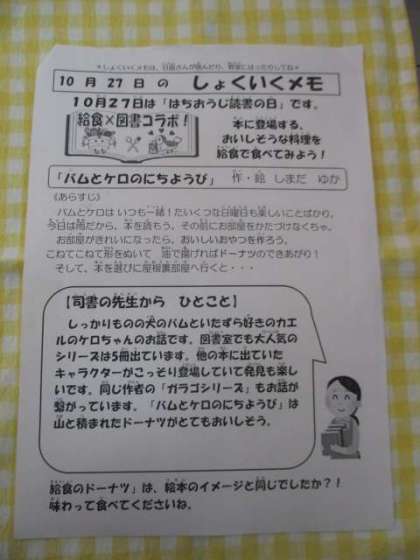 ＊しょくいくメモは、日直さんが読んだり、教室にはったりしてね＊
10月27日の しょくいくメモ
10月27日は「はちおうじ読書の日」です。
給食×図書コラボ！
本に登場する、
おいしそうな料理を
給食で食べてみよう！
「バムとケロのにちようび」 作・絵 しまだ ゆか
《あらすじ》
バムとケロは いつも一緒！たいくつな日曜日も楽しいことばかり。
今日は雨だから、本を読もう。その前にお部屋をかたづけなくちゃ。
お部屋がきれいになったら、おいしいおやつを作ろう。
こねてこねて形をぬいて 油で揚げればドーナツのできあがり！
そして、本を選びに屋根裏部屋へ行くと・・・
【司書の先生から ひとこと】
しっかりものの犬のバムといたずら好きのカエ
ルのケロちゃんのお話です。図書室でも大人気の
シリーズは5冊出ています。他の本に出ていた
キャラクターがこっそり登場していて発見も楽し
いです。同じ作者の「ガラゴシリーズ」もお話が
繋がっています。「バムとケロのにちようび」は
山と積まれたドーナツがとてもおいしそう。
給食のドーナツ」は、絵本のイメージと同じでしたか？！
味わって食べてくださいね。